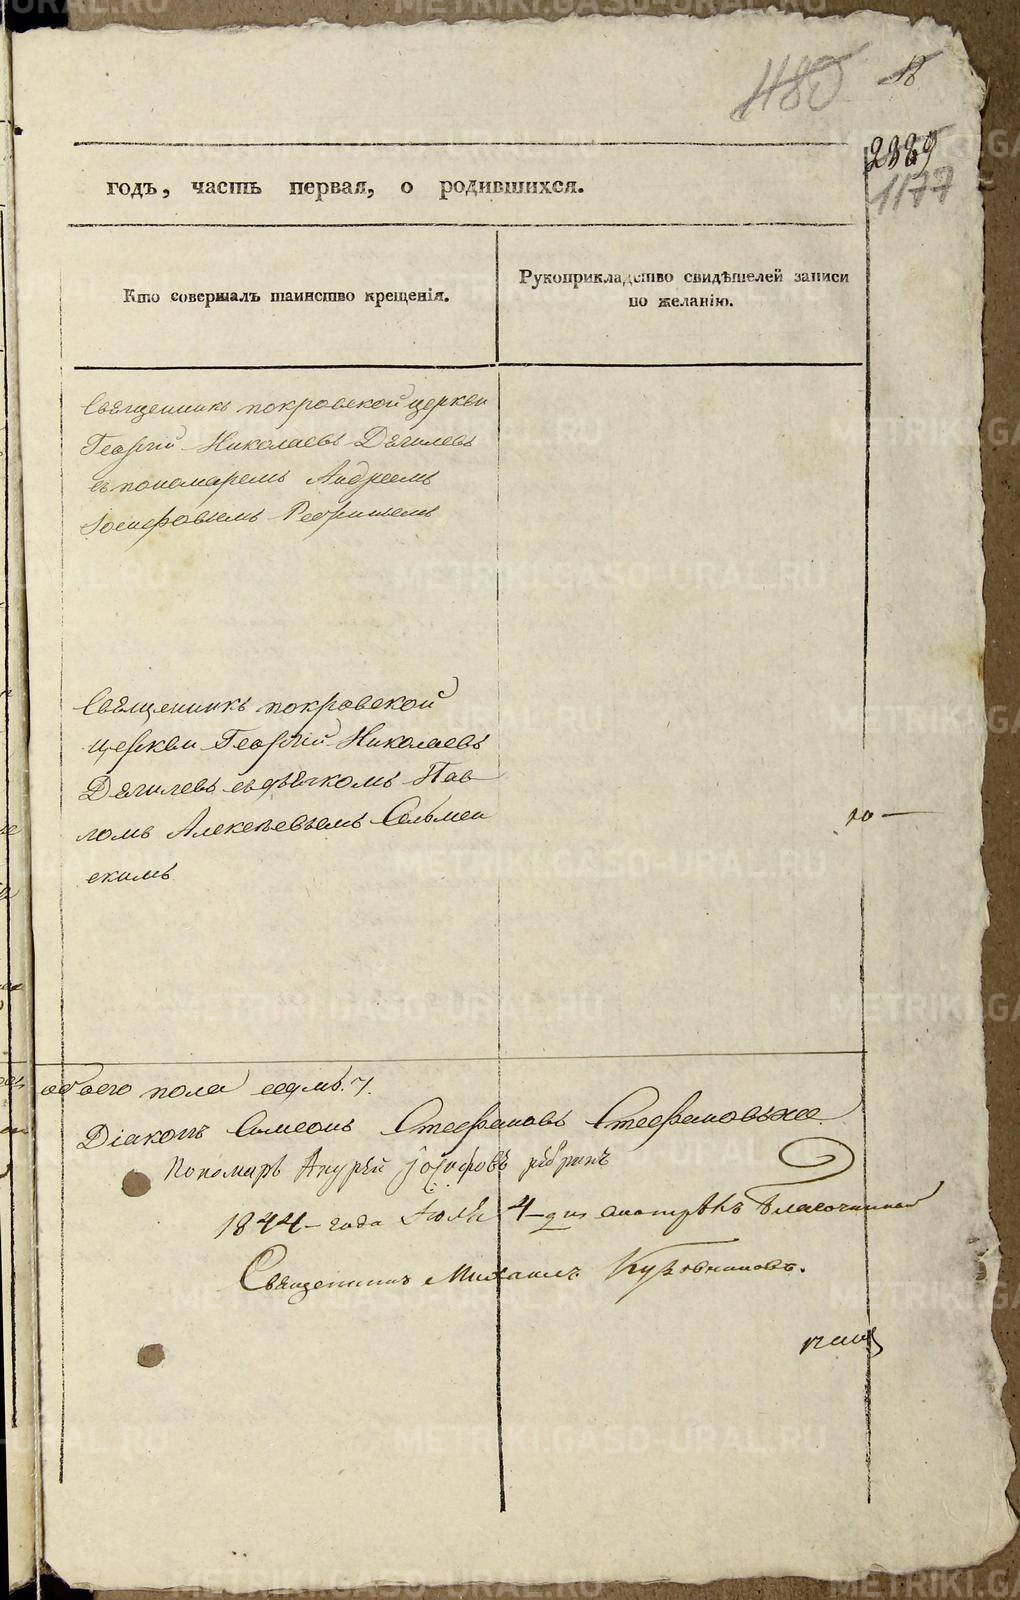 1180
18
2389
1177
годъ, часть первая, о родившихся.
Кто совершалъ таинство крещенія.
Рукоприкладство свидѣтелей записи
по желанію.
Священникъ покровской церкви
Георгій Николаевъ Дягилевъ
съ пономаремъ Андреемъ
Іосифовымъ
Священникъ покровской
церкви Георгій Николаевъ
Дягилевъ съ дьячкомъ Пав
ломъ Алексѣевымъ Сельмен
скимъ
обоего пола седмь. 7.
Діаконъ Симеонъ Стефановъ Стефановыхъ
Пономарь Андрей Іосифовъ
1844 года Іюля 4 дня смотрѣлъ Благочинной
Священникъ Михаилъ
METRIKI.GASO-URAL.RU